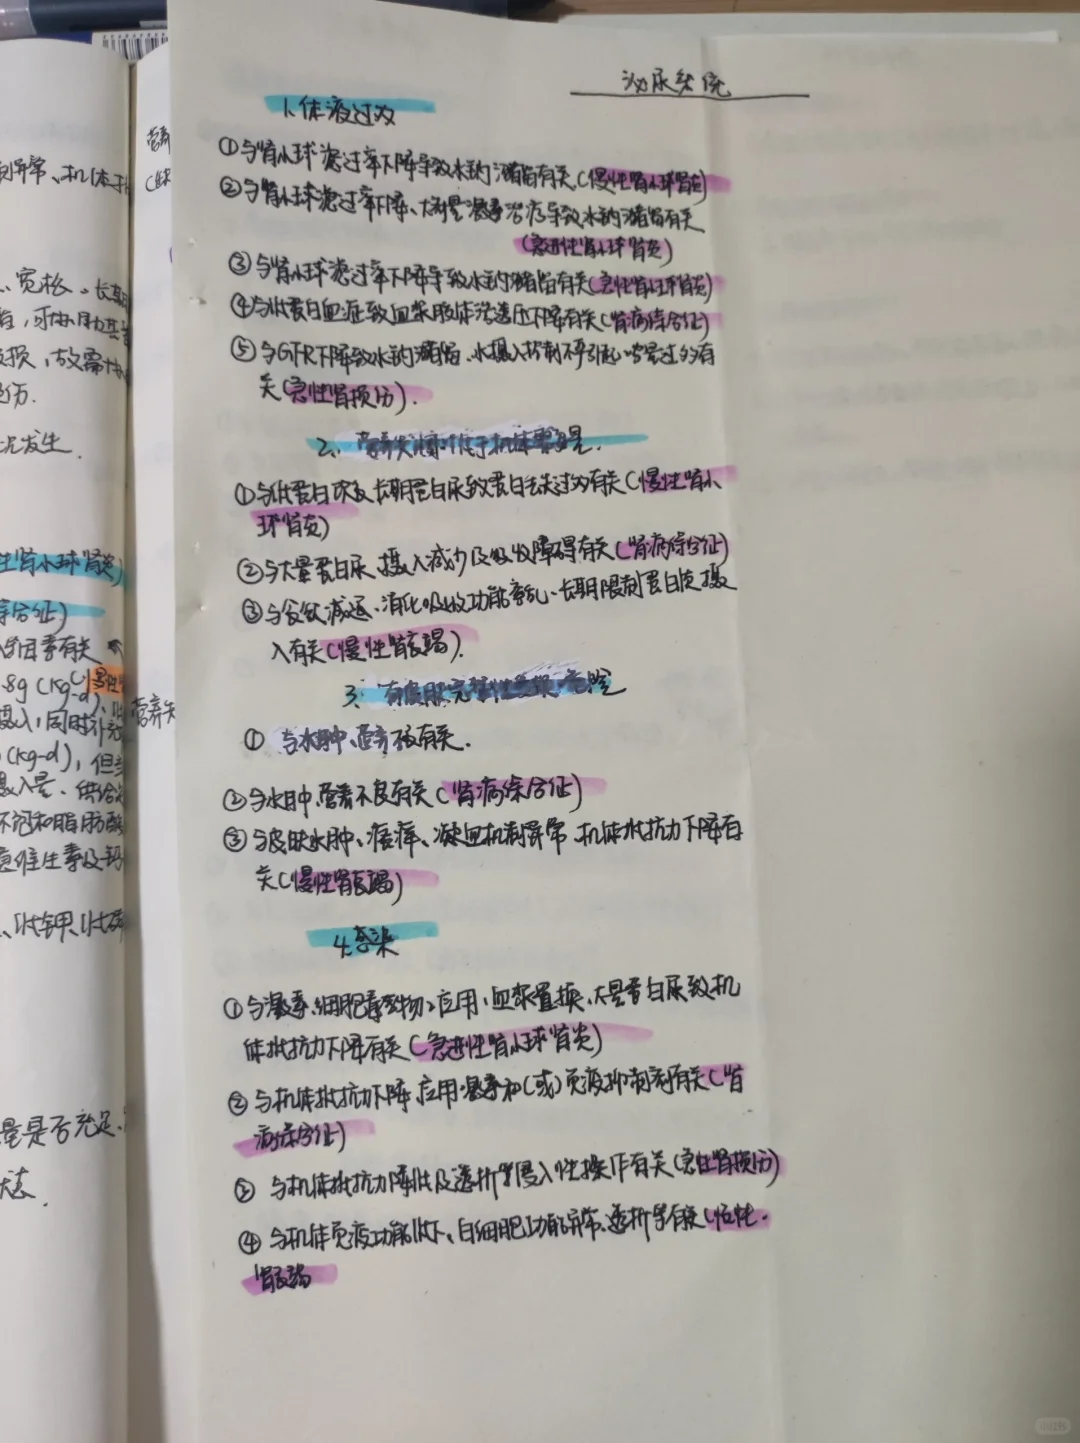 泌尿系统
1、体液过多
①与肾小球滤过率下降导致水钠潴留有关(慢性肾小球肾炎)
②与肾小球滤过率下降、大剂量激素治疗导致水钠潴留有关
(急进性肾小球肾炎)
③与肾小球滤过率下降导致水钠潴留有关(急性肾小球肾炎)
④与低蛋白血症致血浆胶体渗透压下降有关(肾病综合征)
⑤与GFR下降致水钠潴留、水摄入控制不严引起 容量过多有
关(急性肾损伤).
2、营养失调:低于机体需要量.
①与低蛋白饮食,长期蛋白尿致蛋白丢失过多有关(慢性肾小
球肾炎)
②与大量蛋白尿,摄入减少及吸收障碍有关(肾病综合征)
③与食欲减退、消化吸收功能紊乱、长期限制蛋白质摄
入有关(慢性肾衰竭).
3、有皮肤完整性受损 危险
① 与水肿、营养不良有关.
②与水肿、营养不良有关(肾病综合征)
③与皮肤水肿、瘙痒、凝血机制异常、机体抵抗力下降有
关(慢性肾衰竭)
4.感染
①与激素、细胞毒药物 应用,血浆置换、大量蛋白尿致机
体抵抗力下降有关(急进性肾小球肾炎)
②与机体抵抗力下降,应用激素和(或)免疫抑制剂有关(肾
病综合征)
③ 与机体抵抗力降低及透析等侵入性操作有关(急性肾损伤)
④与机体免疫功能低下、白细胞功能异常、透析等有关(慢性
肾衰竭
则异常、机体抵
、宽松。长期
损,故需
伤.
况发生.
性肾小球肾炎)
综合征)
入等因素有关
.8g(kg·d),
摄入,同时补充
(kg-d),但
摄入量、供给
不饱和脂肪酸
意维生素及钙
、低钾、低磷
量是否充足、
状态.
营养
营养失
小红书